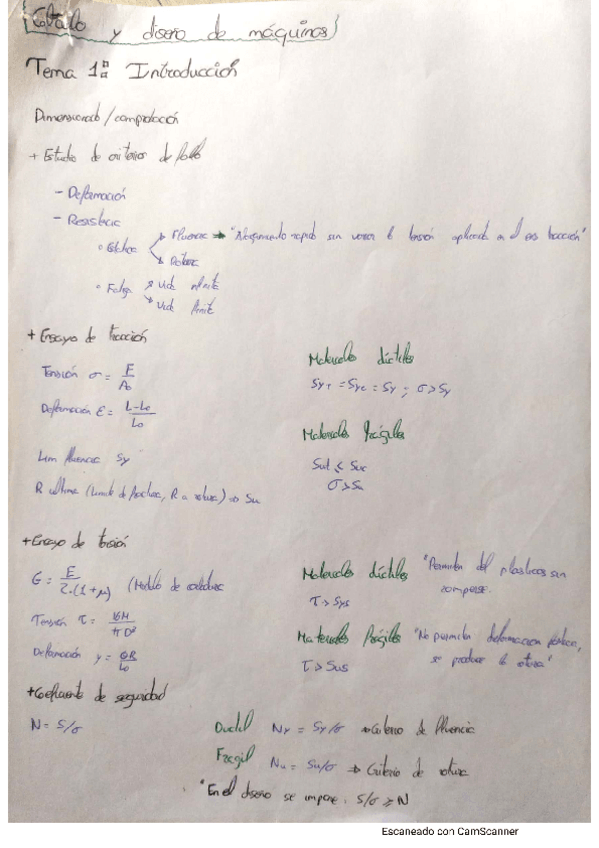 Cálculo y diseño de máquinas
Tema 1: Introducción
Dimensionado/comprobación
+ Estudio de criterios de fallo
- Deformación
- Resistencia
• Estática
Fluencia → "Alargamiento rápido sin variar la tensión aplicada en el ens tracción"
Rotura
• Fatiga
Vida infinita
Vida finita
+ Ensayo de tracción
Tensión σ = F/A₀
Deformación ε = L-L₀/L₀
Lím fluencia Sy
R última (Límite de fractura, R a rotura) => Su
Materiales dúctiles
Syt = Syc = Sy ; σ > Sy
Materiales frágiles
Sut < Suc
σ > Su
+ Ensayo de torsión
G = E/2·(1+μ) (Módulo de
Tensión τ = 16M/πD³
Deformación γ = θR/L₀
Materiales dúctiles "Permiten def plásticas sin romperse.
τ > Sys
Materiales frágiles "No permiten deformación plástica, se produce la rotura"
τ > Sus
+ Coeficiente de seguridad
N = S/σ
Dúctil Ny = Sy/σ → Criterio de fluencia
Frágil Nu = Su/σ → Criterio de rotura
* En el diseño se impone: S/σ ≥ N
Escaneado con CamScanner